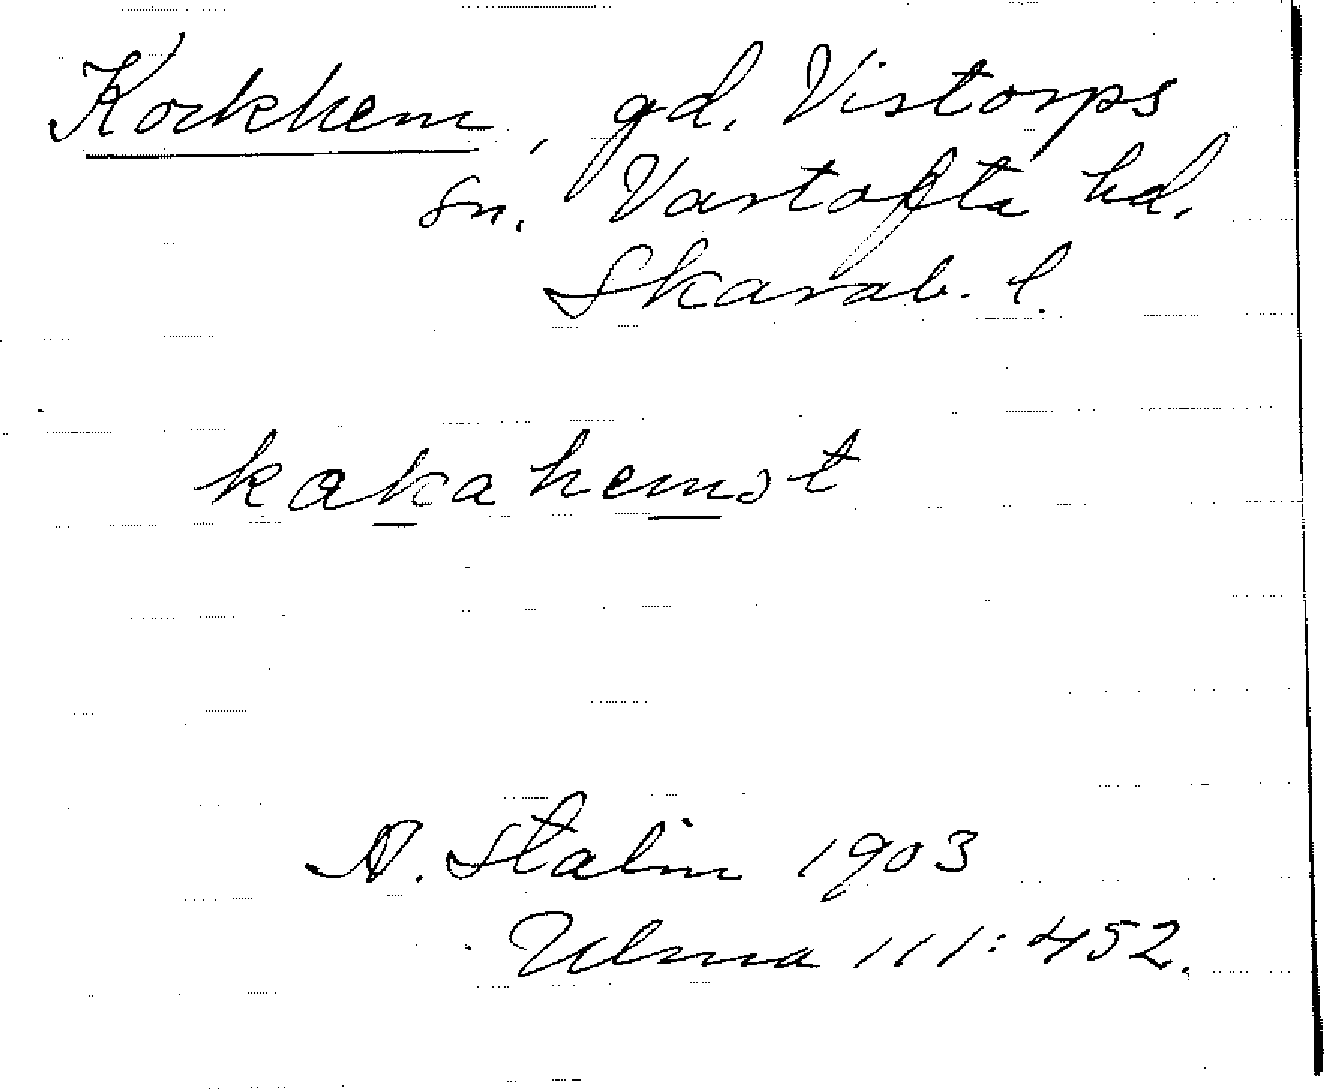 Kockhem, gd. Vistorps
sn. Vartofta hd.
Skarab. l.
kakahemst
A. Stalin 1903
Ulma 111:452.